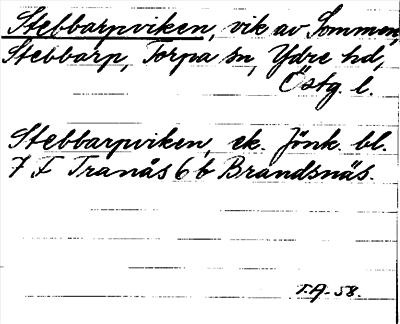 Stebbarpviken, vik av Sommen,
Stebbarp, Torpa sn, Ydre hd,
Östg. l.
Stebbarpviken, ek. Jönk. bl.
7 F Tranås 6 b Brandsnäs.
T.A. 58.